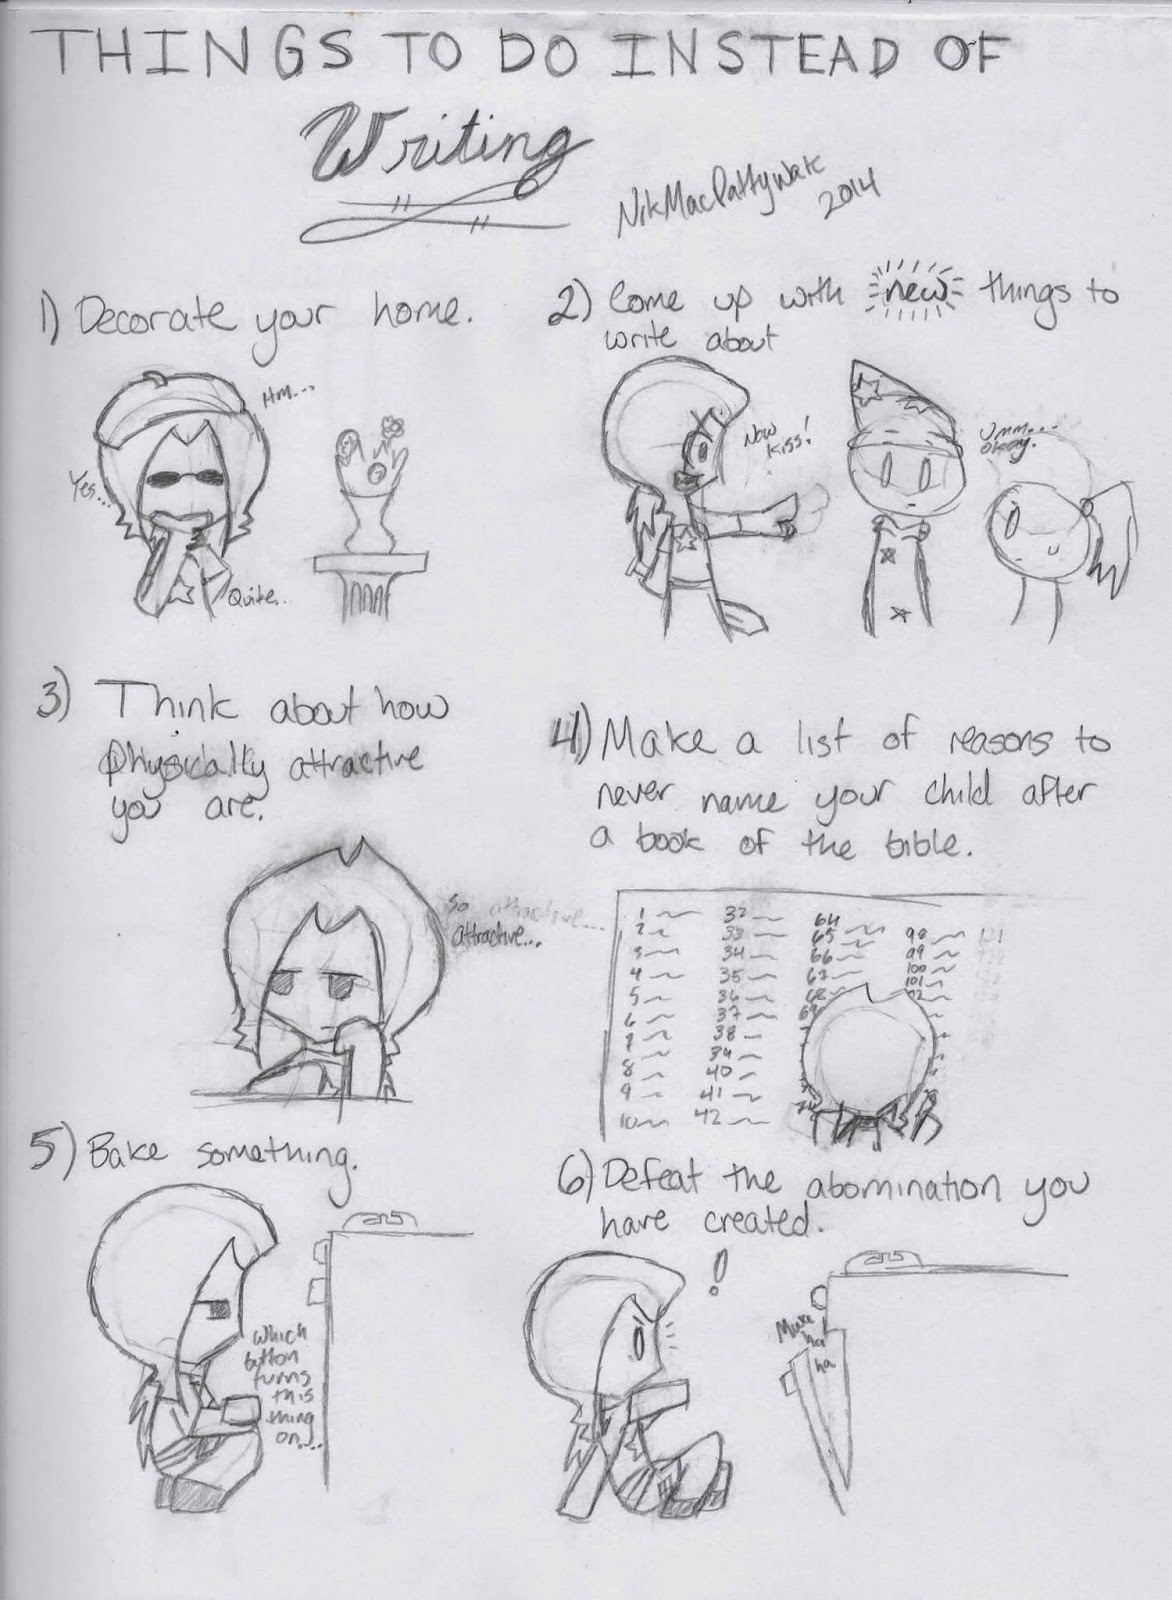 THINGS TO DO INSTEAD OF
Writing
NikMacPattywak
2014
1) Decorate your home.
Hm...
Yes...
Quite..
2) Come up with new things to
write about
Now
kiss!
Umm...
okay.
3) Think about how
Physically attractive
you are.
So attractive...
attractive...
4) Make a list of reasons to
never name your child after
a book of the bible.
1
2
3
4
5
6
7
8
9
10
32
33
34
35
36
37
38
39
40
41
42
64
65
66
67
68
69
98
99
100
101
5) Bake something.
Which
button
turns
this
thing
on...
6) Defeat the abomination you
have created.
!
ha
ha